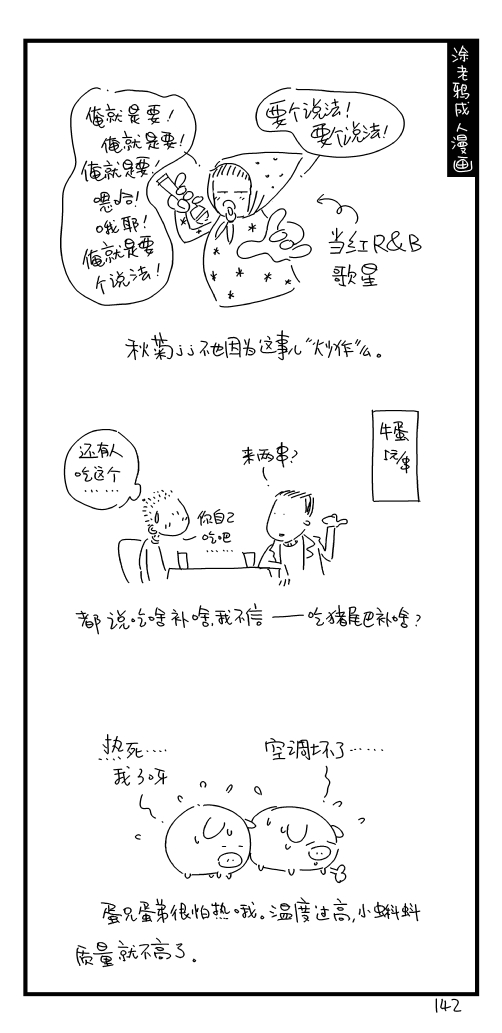 涂老鸦成人漫画
俺就是要!
俺就是要!
俺就是要!
嗯哈!
哦耶!
俺就是要
个说法!
要个说法!
要个说法!
当红R&B
歌星
秋菊jj不也因为这事儿“炒作”么。
还有人
吃这个
……
来两串?
牛蛋
1元/串
你自己
吃吧
……
都说吃啥补啥,我不信——吃猪尾巴补啥?
热死……
我了呀
空调坏了……
蛋兄蛋弟很怕热哦。温度过高,小蝌蚪
质量就不高了。
142